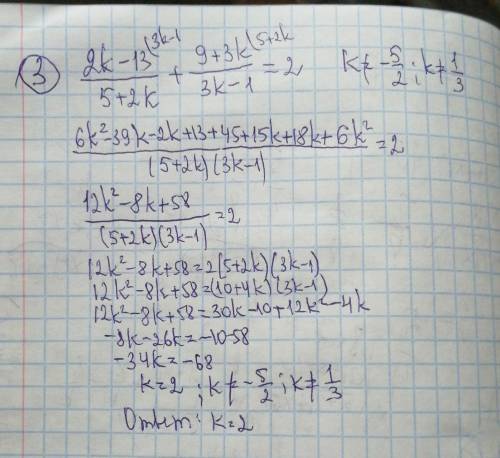 ③ (2k-13)/(5+2k) ^(3k-1 + (9+3k)/(3k-1) ^(5+2k = 2 k≠-5/2; k≠1/3
(6k²-39k-2k+13+45+15k+18k+6k²)/((5+2k)(3k-1)) = 2
(12k²-8k+58)/((5+2k)(3k-1)) = 2
12k²-8k+58=2(5+2k)(3k-1)
12k²-8k+58=(10+4k)(3k-1)
12k²-8k+58=30k-10+12k²-4k
-8k-26k=-10-58
-34k=-68
k=2 ; k≠-5/2; k≠1/3
Ответ: k=2